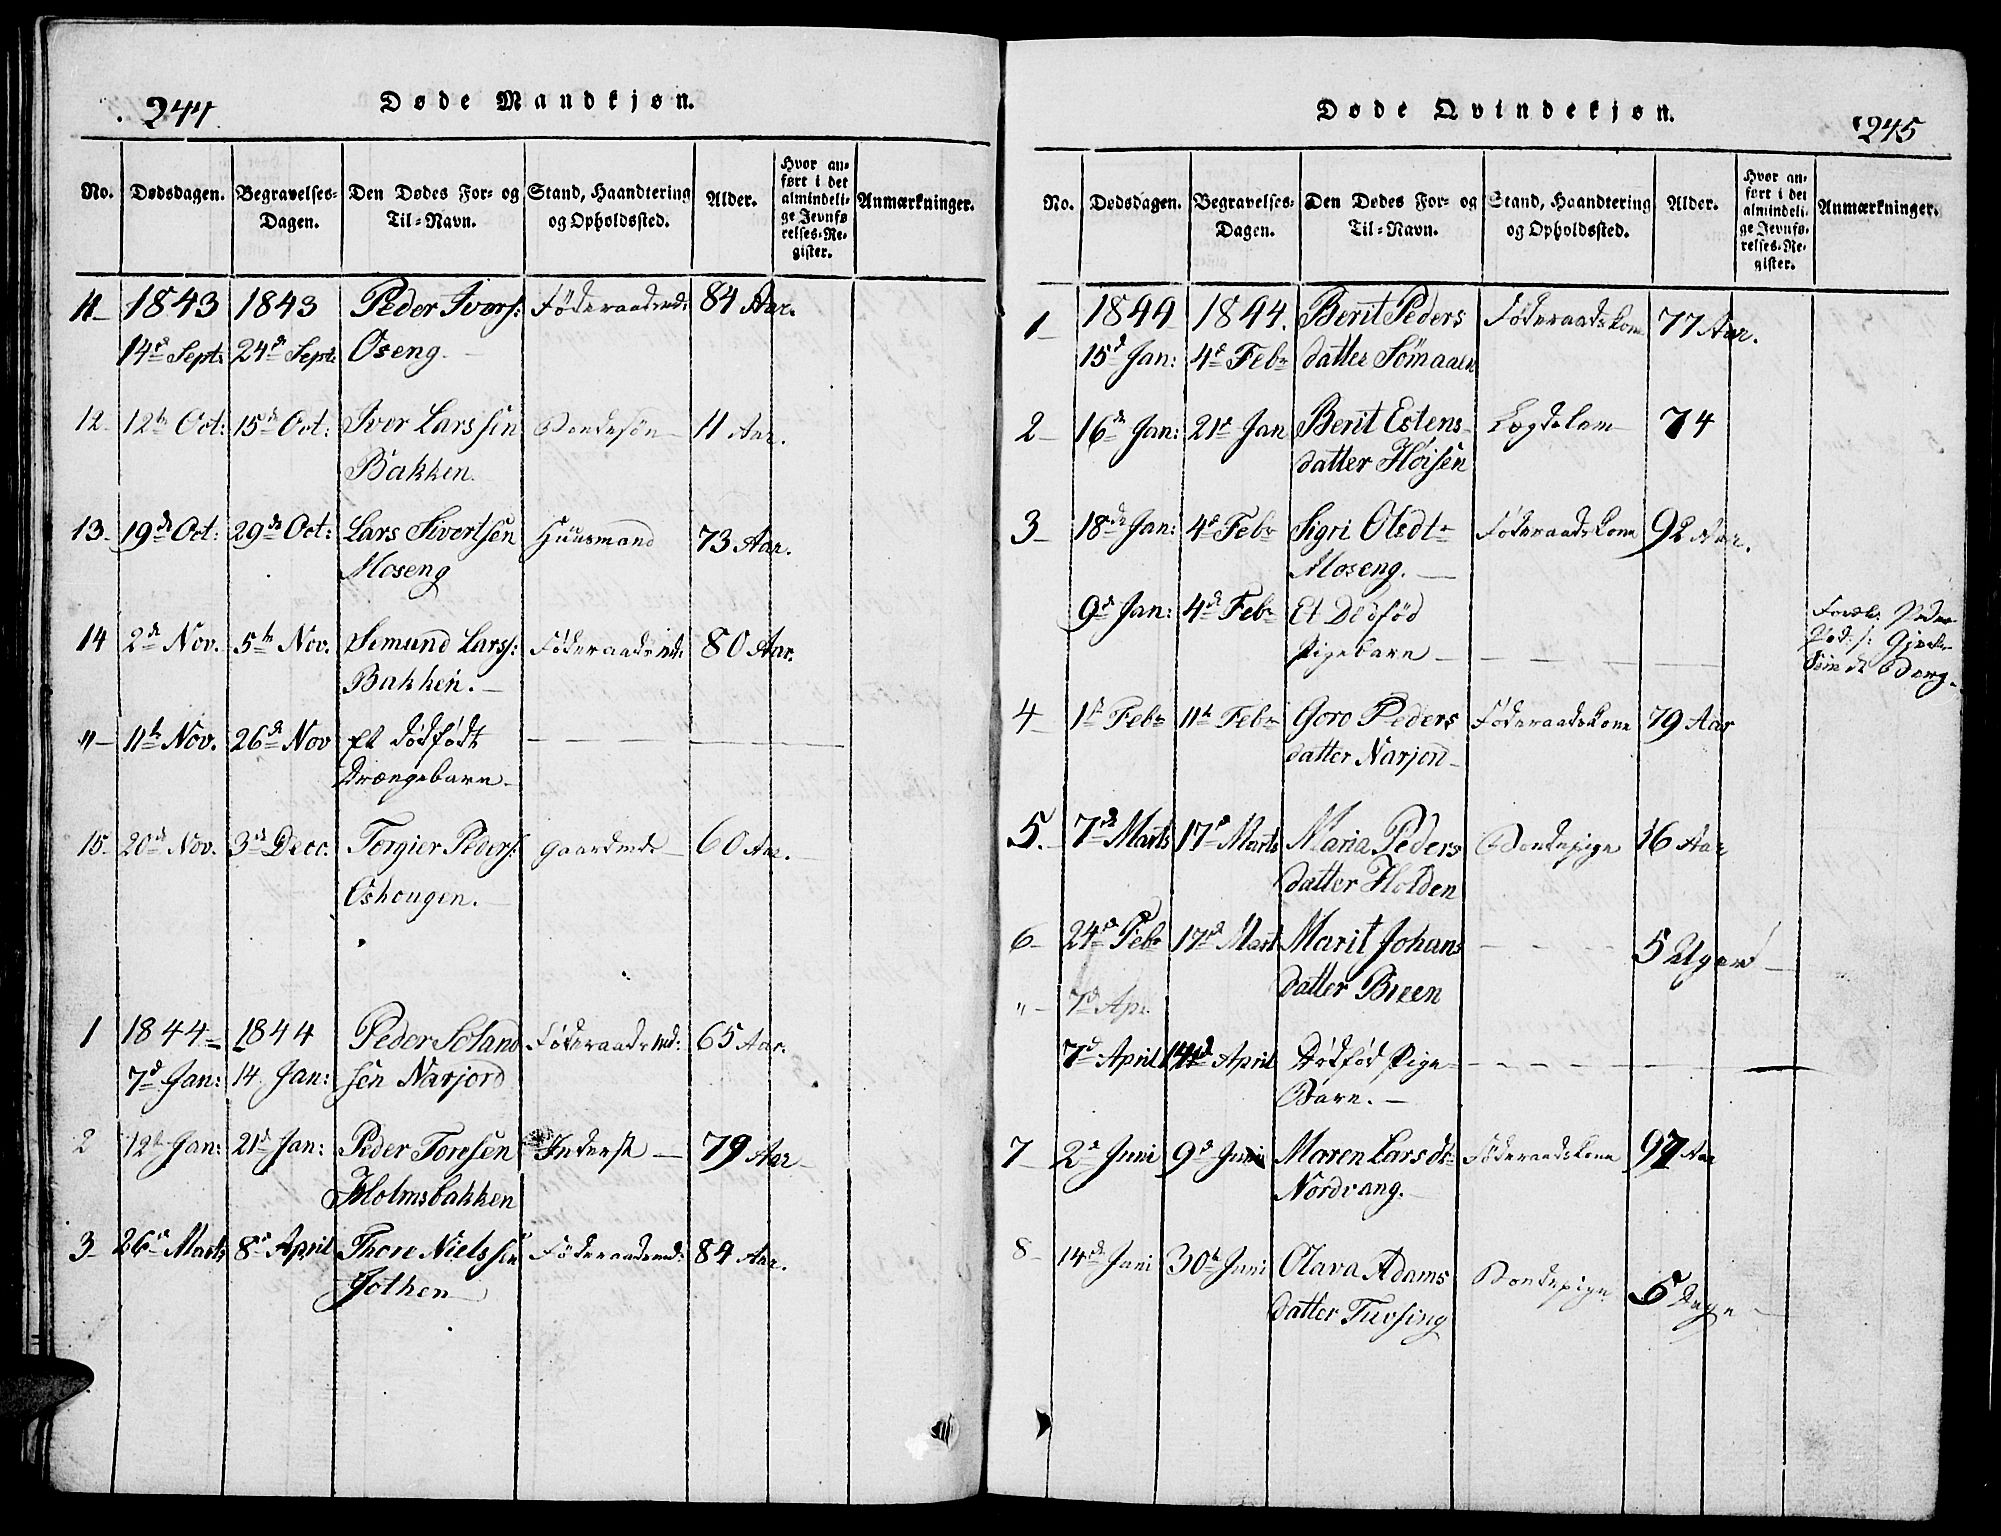 244
Døde Mandkjøn.
No. Dødsdagen. Begravelses-Dagen. Den Dødes For- og Til-Navn. Stand, Haandtering og Opholdssted. Alder. Hvor anført i det almindelige Jevnførelses-Register. Anmærkninger.
11 1843 1843 Peder Ivers: Føderaadsmd: 84 Aar.
14de Sept: 24de Sept: Oseng.
12 12te Oct: 15de Oct: Iver Larssen Bondesøn 11 Aar.
Bakken
13 19de Oct: 29de Oct: Lars Sivertsen Huusmand 73 Aar.
Moseng
14 2de Nov. 5te Nov. Semund Larss: Føderaadsmd: 80 Aar.
Bakken.
" 11te Nov. 26de Nov Et dødfødt
Drængebarn
15 20de Nov. 3de Dec. Torgier Peders: Gaardmd 60 Aar.
Oshougen.
1 1844 1844 Peder Estand Føderaadsmd: 65 Aar.
7de Jan: 14 Jan: sen Narjord
2 12te Jan: 21de Jan: Peder Toresen Inderst 79 Aar
Holmsbakken
3 26de Marts 8de April Thore Nielssen Føderaadsmd: 84 Aar.
Jothen
Døde Qvindekjøn.
245
No. Dødsdagen. Begravelses-Dagen. Den Dødes For- og Til-Navn. Stand, Haandtering og Opholdssted. Alder. Hvor anført i det almindelige Jevnførelses-Register. Anmærkninger.
1 1844 1844. Berit Peders Føderaadskone 77 Aar.
15de Jan: 4de Febr datter Sømaaen
2 16de Jan: 21de Jan Berit Estens Lægdelem 74
datter Høisen
3 18de Jan: 4de Febr Sigri Olsdtr Føderaadskone 92 Aar.
Moseng.
9de Jan: 4de Febr Et Dødfød
Pigebarn
Foræld: Peder
4 1ste Febr 11te Febr Goro Peders Føderaadskone 79 Aar
datter Narjord
5. 7de Marts 17de Marts Maria Peders Bondepige 16 Aar
datter Holden
6 24de Febr 17de Marts Marit Johans 5 Uger
datter Breen
" 7de Apr
7de April 14de April Dødfød Pige
Barn.
7 2de Juni 9de Juni Maren Larsdt Føderaadskone 97 Aar
Nordvang.
8 14de Juni 30te Juni Olava Adams Bondepige 5 Dage
datter Tufsing